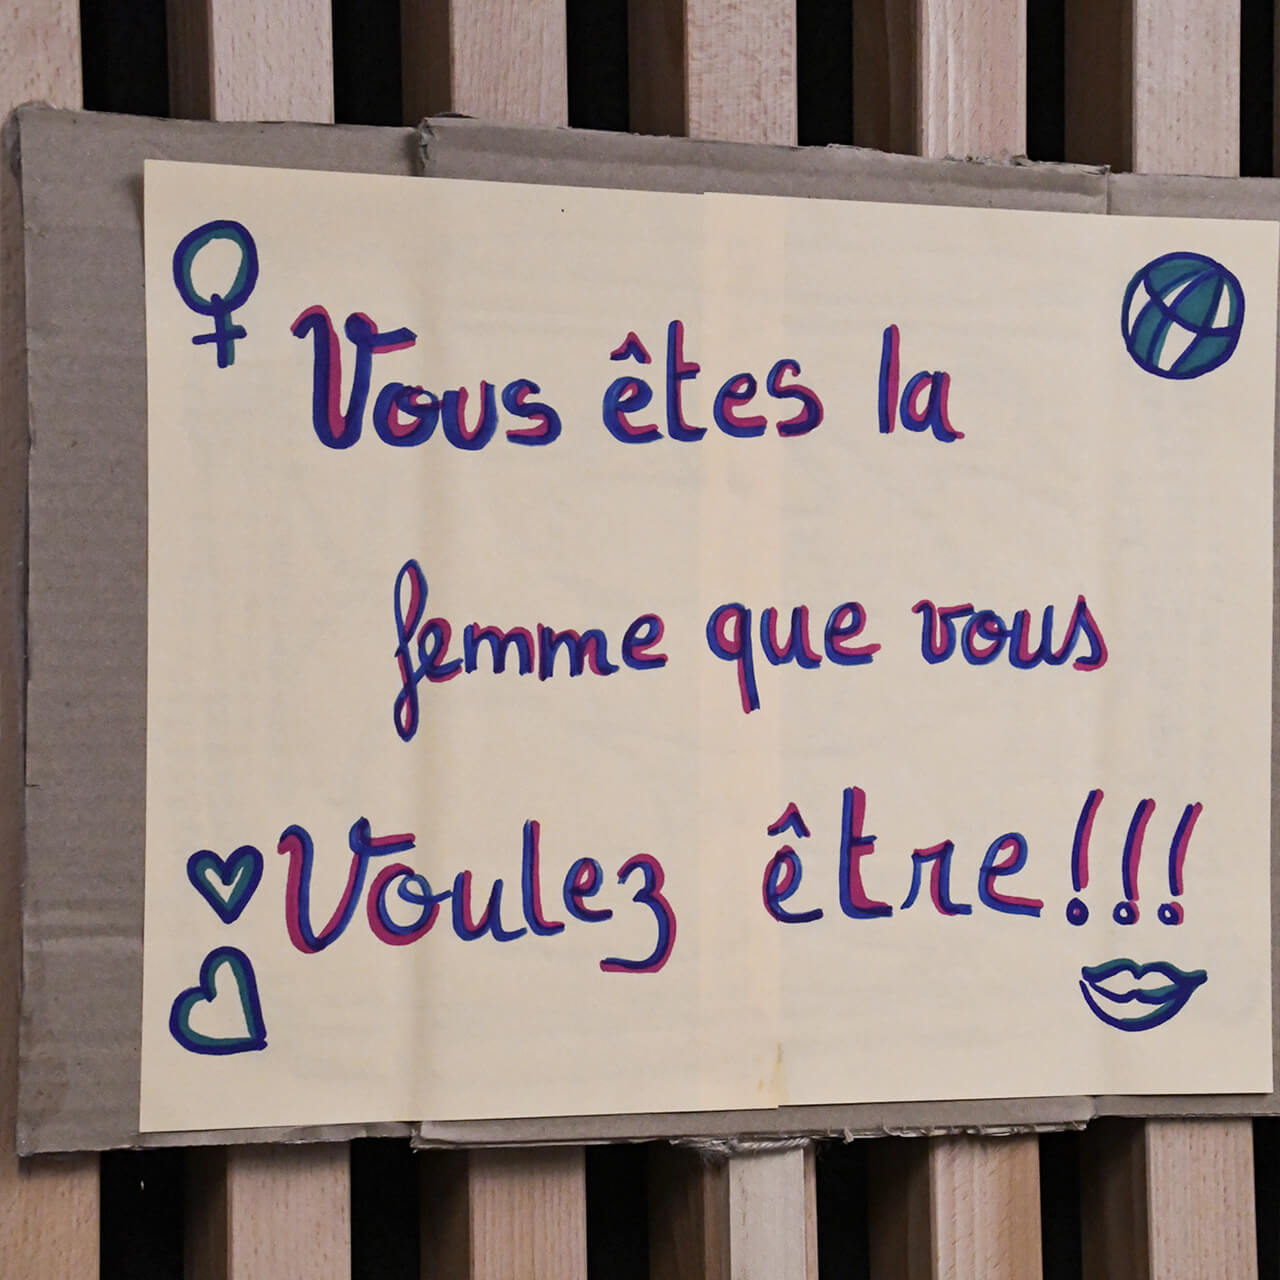 Vous êtes la
femme que vous
Voulez être!!!